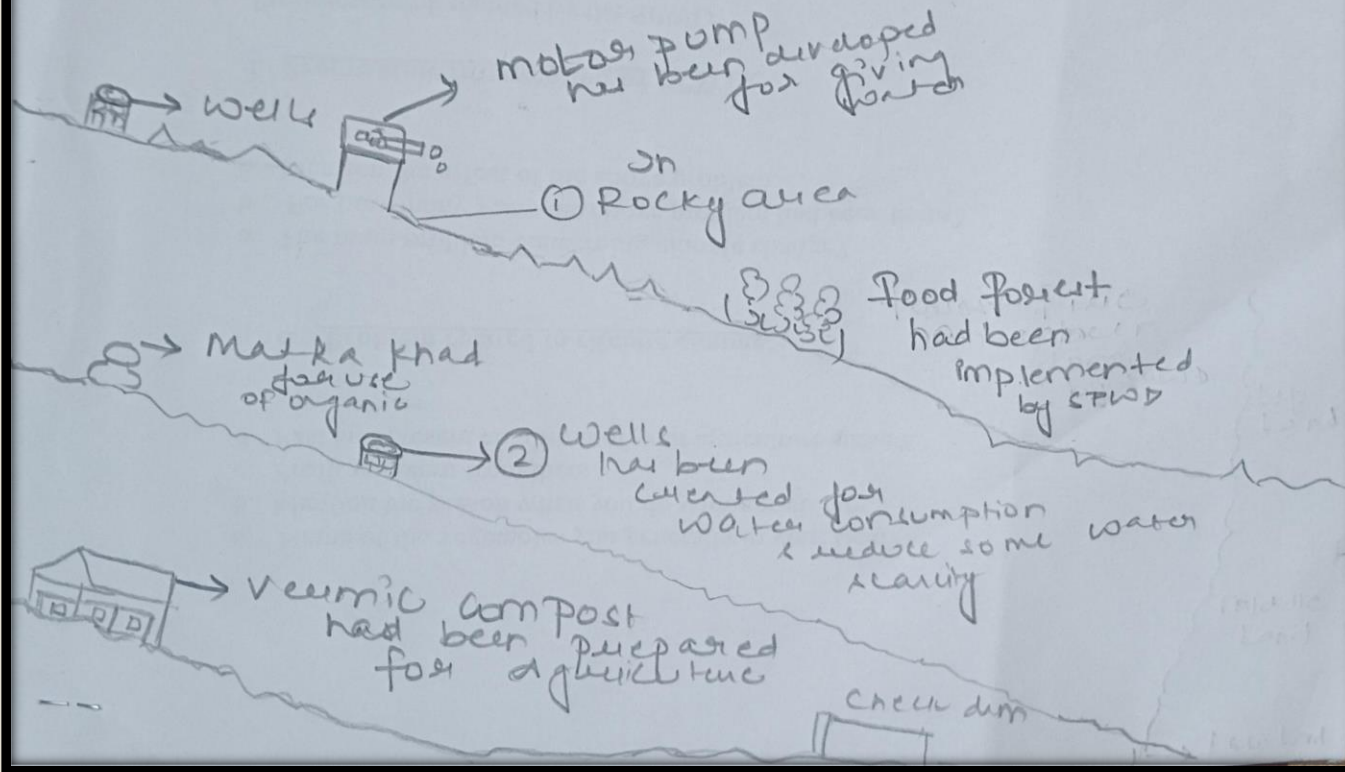 wells
motor pump
has been developed
for giving
water
In
① Rocky area
Food forest
had been
implemented
by SPWD
Matka khad
for use
of organic
② Wells
has been
created for
water consumption
& reduce some water
scarcity
Vermic compost
had been prepared
for agriculture
Check dam